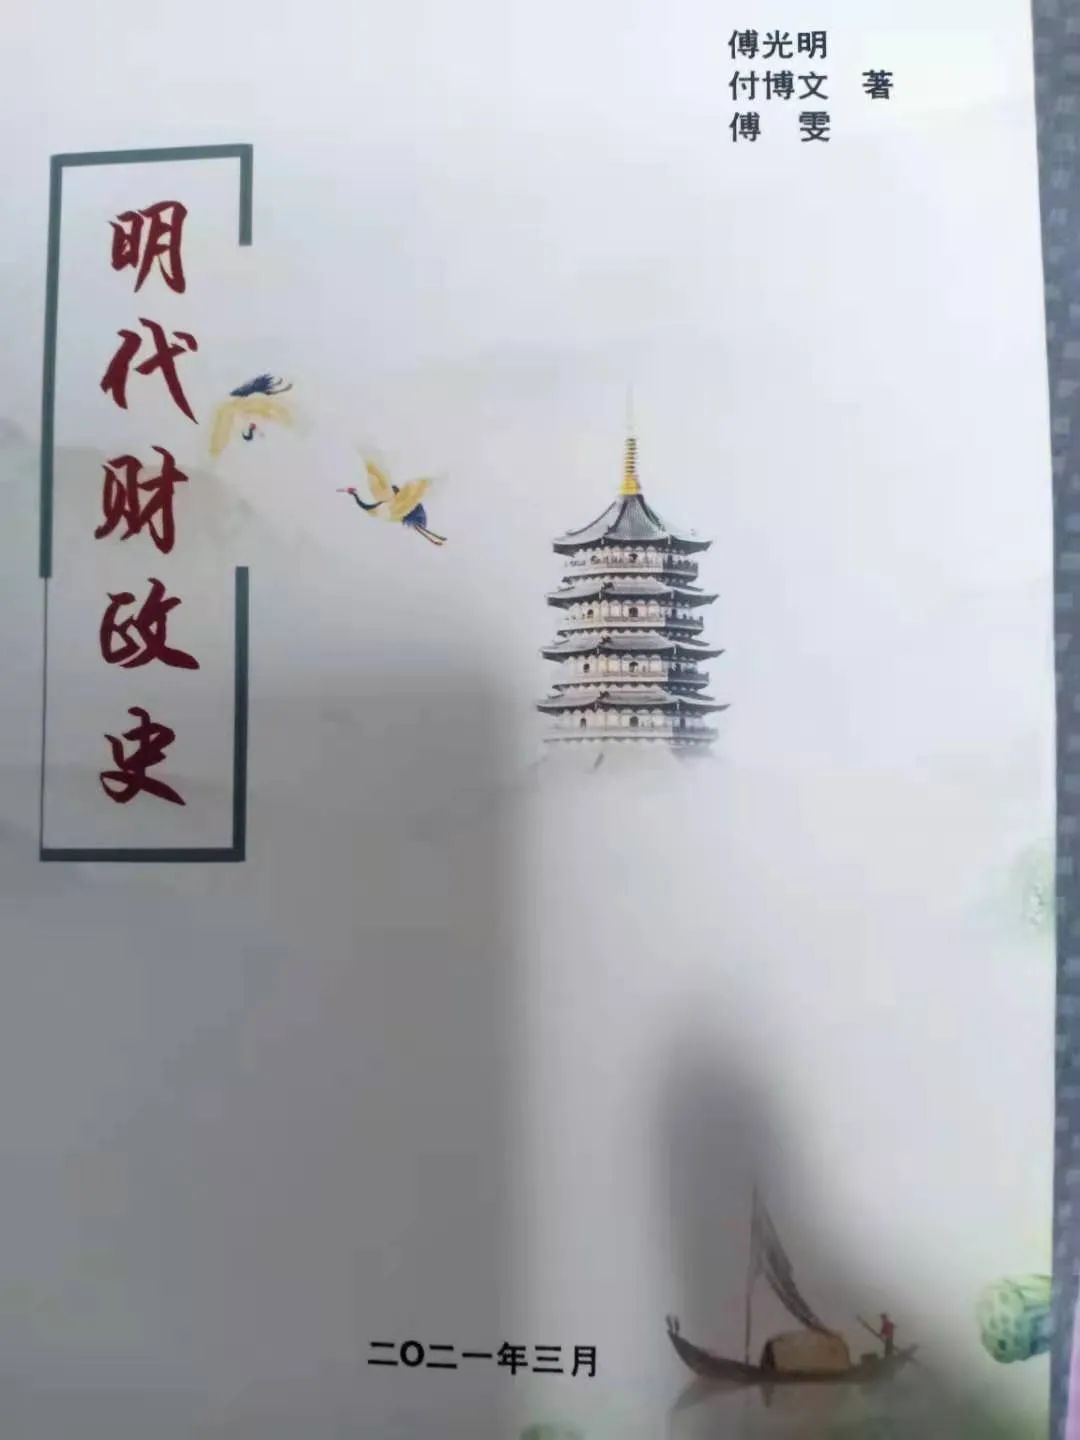 傅光明
付博文 著
傅 雯
明代财政史
二〇二一年三月